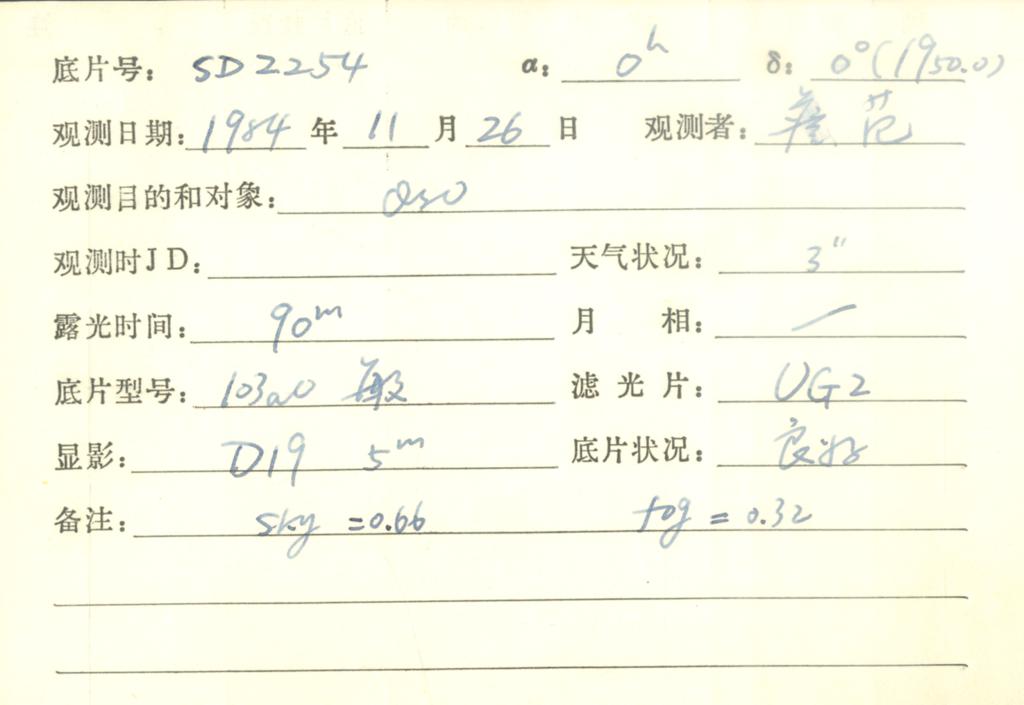 底片号: SD2254 α: 0h δ: 0°(1950.0)
观测日期: 1984 年 11 月 26 日 观测者: 范
观测目的和对象: QSO
观测时JD: 天气状况: 3"
露光时间: 90m 月 相: 一
底片型号: 103aO 敏 滤光片: UG2
显影: D19 5m 底片状况: 良好
备注: sky = 0.66 fog = 0.32